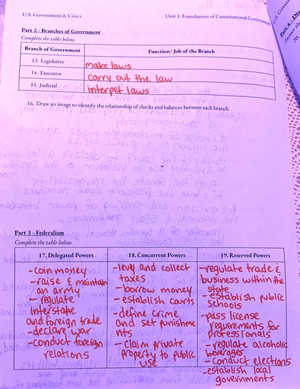 U.S. Government & Civics
Unit 1: Foundations of Constitutional
Part 2 - Branches of Government
Complete the table below.
Branch of Government
Function/ Job of the Branch
13. Legislative
make laws
14. Executive
carry out the law
15. Judicial
interpet laws
16. Draw an image to identify the relationship of checks and balances between each branch.
Part 3 - Federalism
Complete the table below.
17. Delegated Powers
-coin money
-raise & maintain
an army
- regulate
interstate
and foreign trade
- declare war
-conduct foreign
relations
18. Concurrent Powers
-levy and collect
taxes
-borrow money
-establish courts
-define crime
and set punishme
nts
- claim private
property to public
use
19. Reserved Powers
-regulate trade &
business within the
state
-establish public
schools
-pass license
requirements for
professionals
-regulate alcoholic
beverages
- conduct elections
-establish local
governments